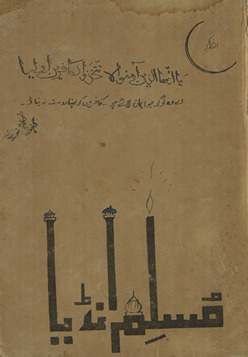 یا ایھا الذین آمنوا لا تتخذوا الکافرین اولیا
اے وہ لوگو جو ایمان لائے ہو۔ کافرین کو اپنا دوست نہ بناؤ۔
مسلم انڈیا